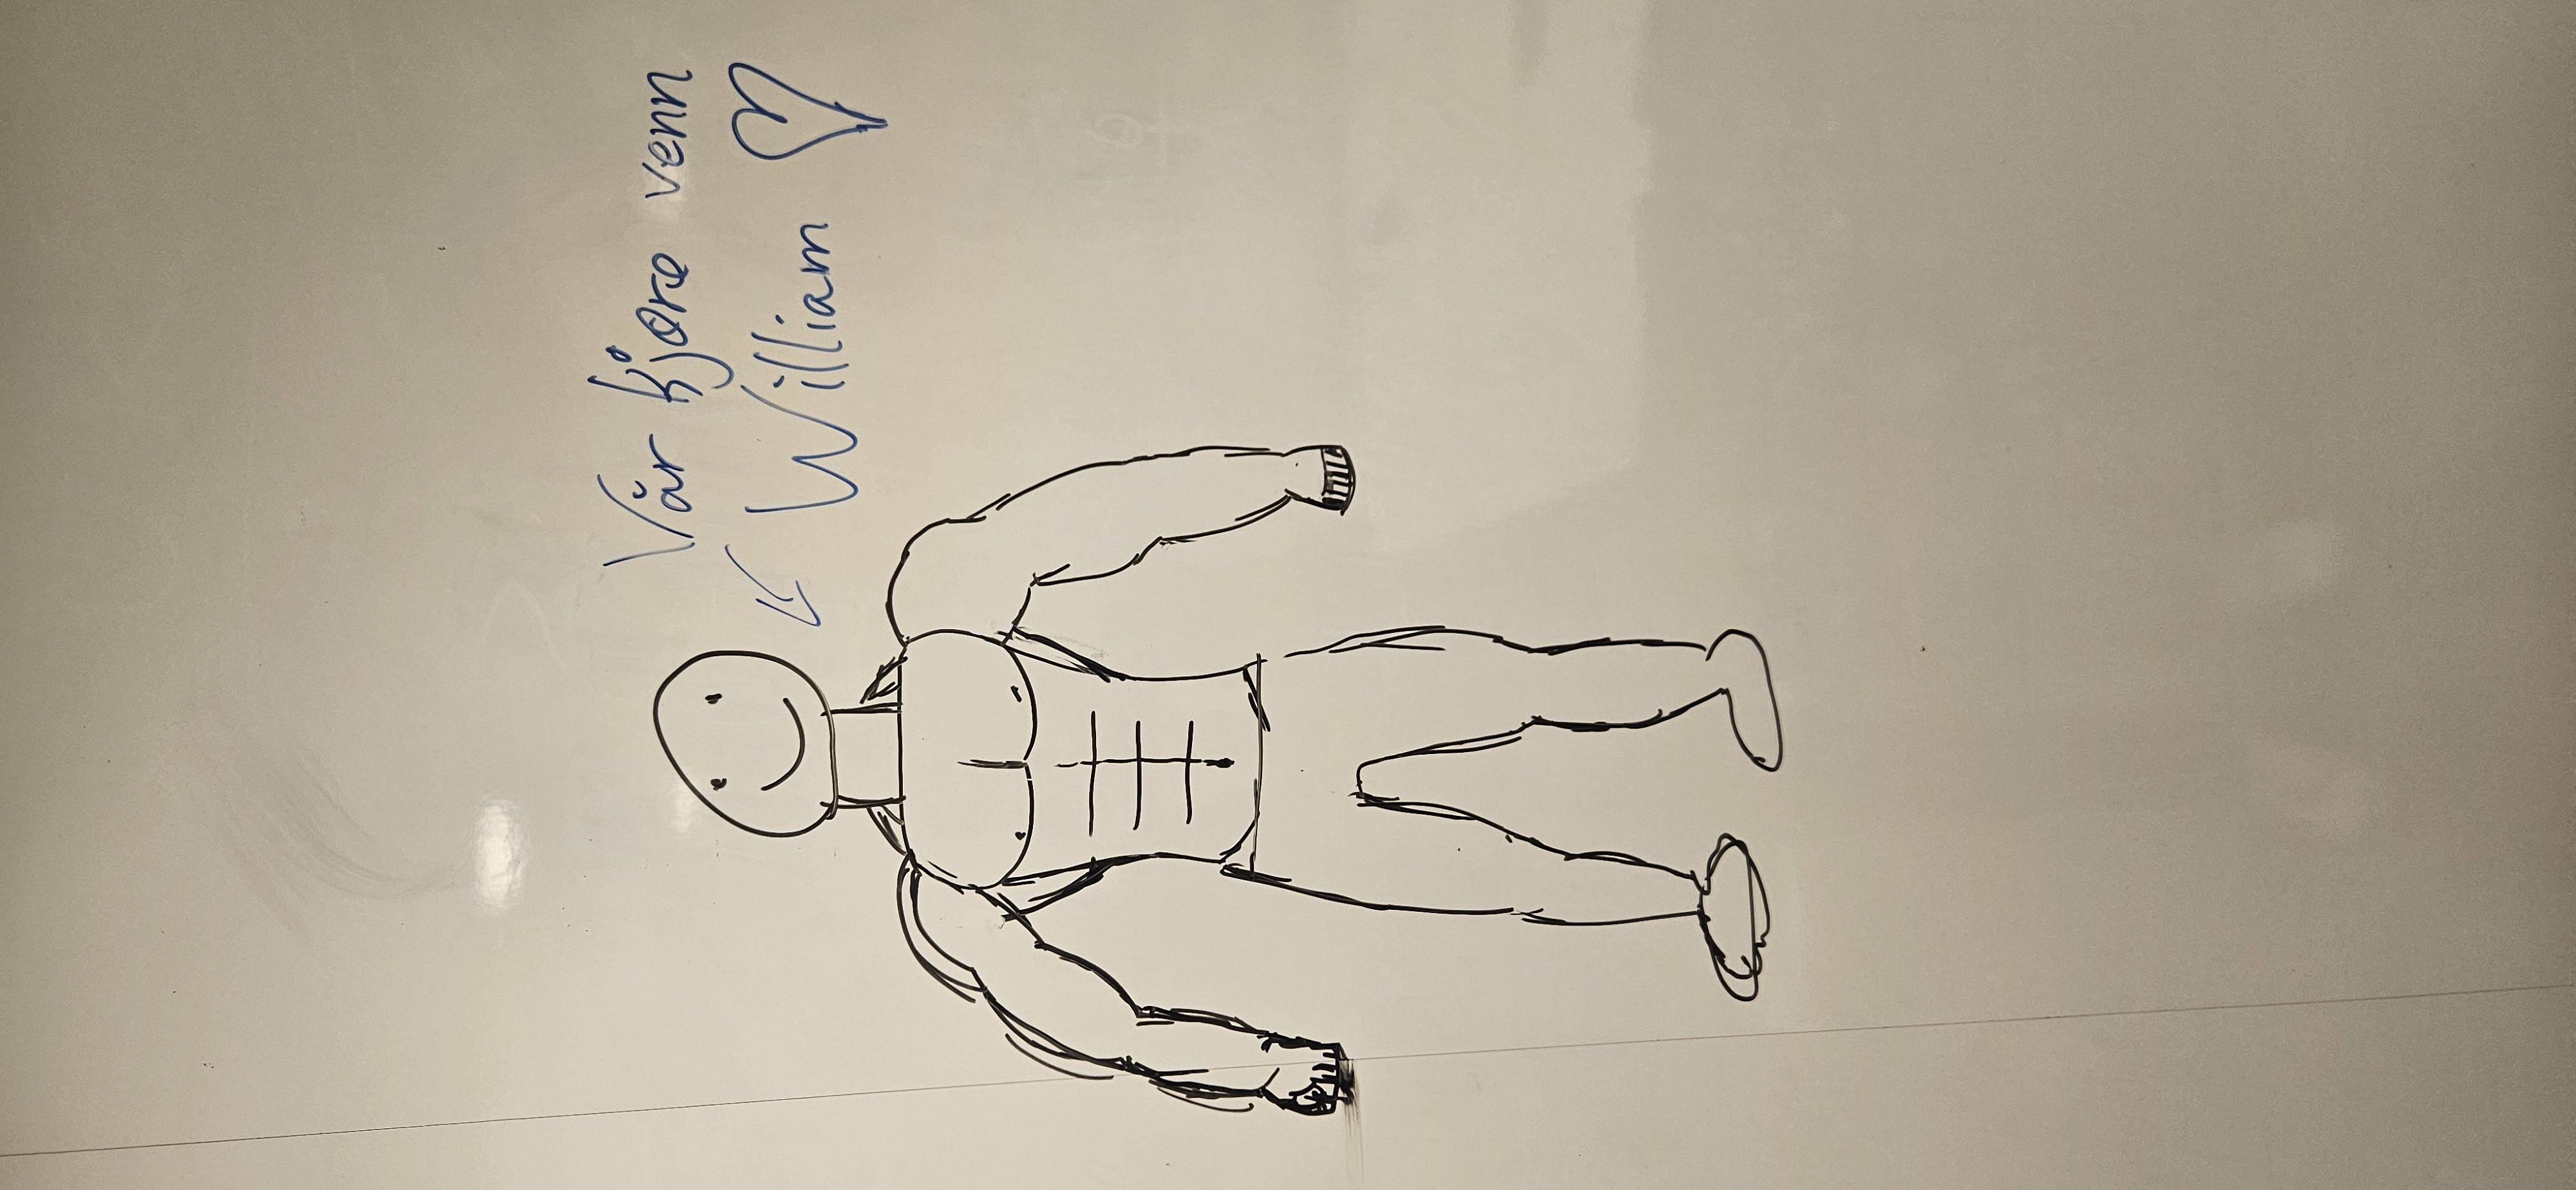 Vår kjøre venn
William ♡